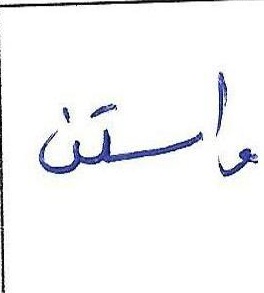 واستن